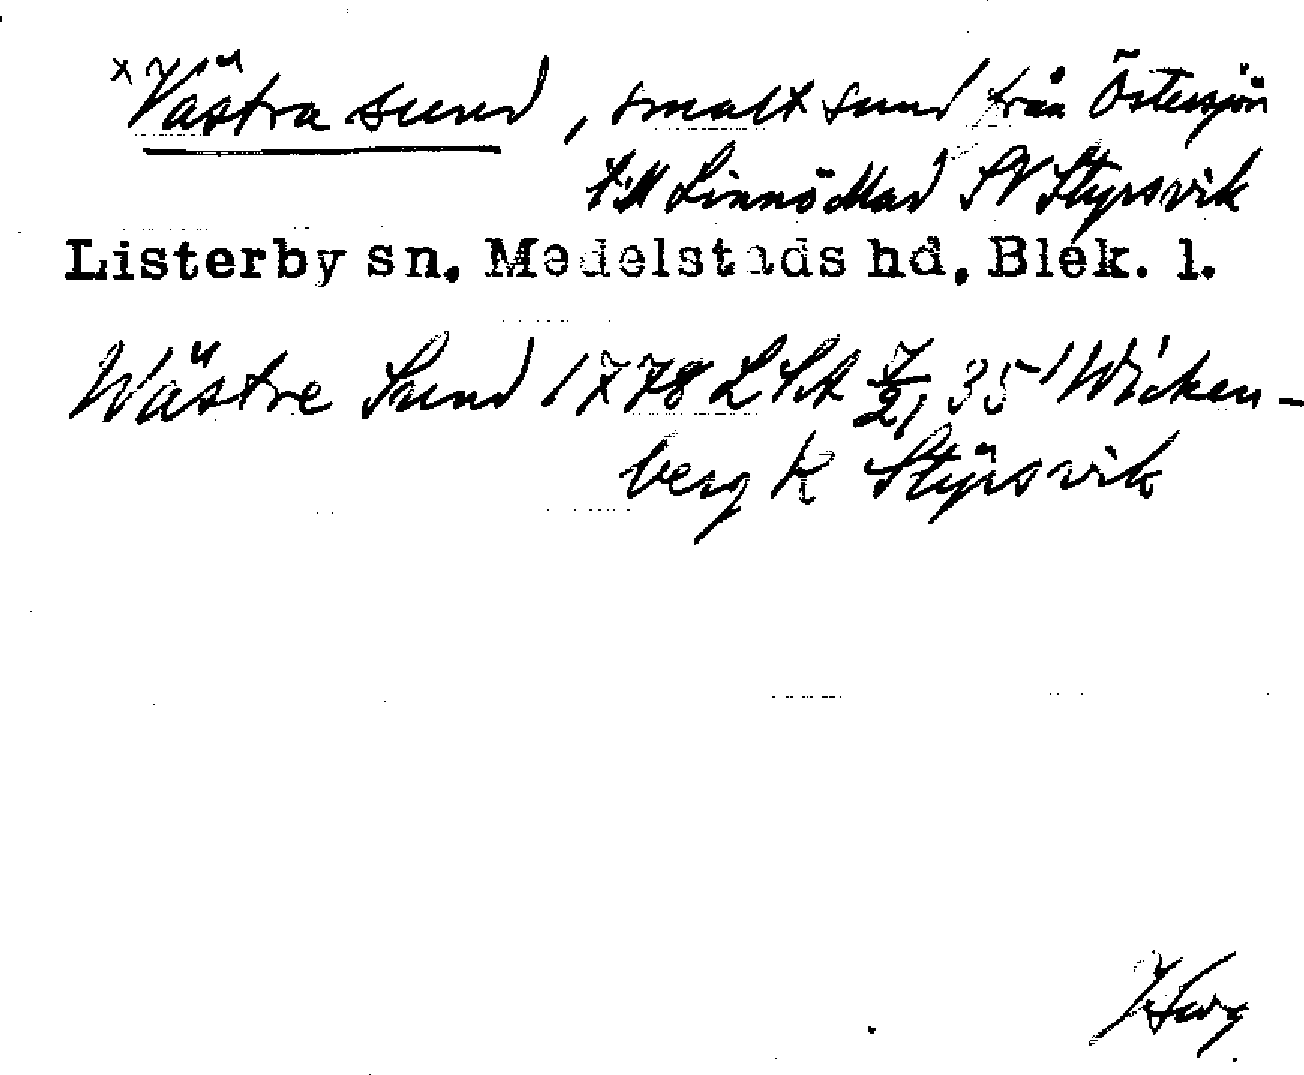 x Västra sund, smalt sund från Östersjön
till Linnö Mad SV Styrsvik
Listerby sn. Medelstads hd, Blek. l.
Wästre Sund 1778 LSA 7/2, 35 Wicken-
berg K Styrsvik